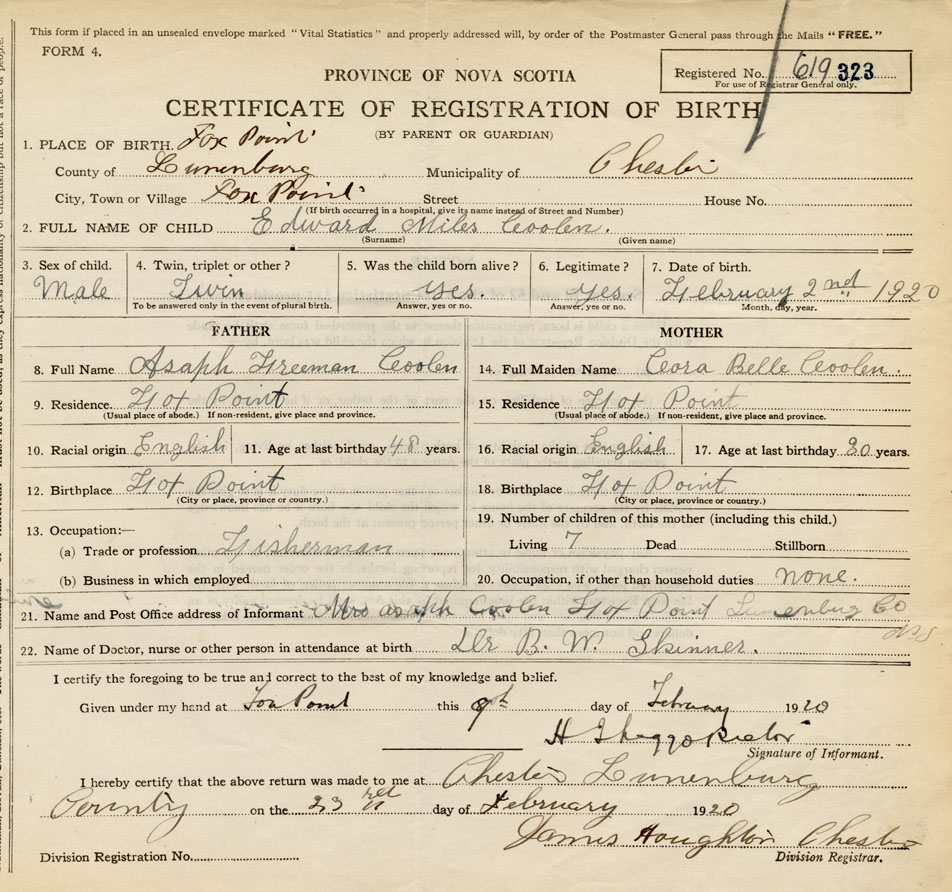 This form if placed in an unsealed envelope marked "Vital Statistics" and properly addressed will, by order of the Postmaster General pass through the Mails "FREE."
FORM 4.
Registered No. 619 323
For use of Registrar General only.
PROVINCE OF NOVA SCOTIA
CERTIFICATE OF REGISTRATION OF BIRTH
(BY PARENT OR GUARDIAN)
1. PLACE OF BIRTH. Fox Point
County of Lunenburg Municipality of Chester
City, Town or Village Fox Point Street House No.
(If birth occurred in a hospital, give its name instead of Street and Number)
2. FULL NAME OF CHILD Edward Miles Coolen.
(Surname) (Given name)
3. Sex of child. 4. Twin, triplet or other? 5. Was the child born alive? 6. Legitimate? 7. Date of birth.
Male Twin yes. yes. February 2nd 1920
To be answered only in the event of plural birth. Answer, yes or no. Answer, yes or no. Month, day, year.
FATHER MOTHER
8. Full Name Asaph Freeman Coolen 14. Full Maiden Name Ceora Belle Coolen.
9. Residence. Fox Point 15. Residence Fox Point
(Usual place of abode.) If non-resident, give place and province. (Usual place of abode.) If non-resident, give place and province.
10. Racial origin English 11. Age at last birthday 48 years. 16. Racial origin English 17. Age at last birthday 30 years.
12. Birthplace Fox Point 18. Birthplace Fox Point
(City or place, province or country.) (City or place, province or country.)
13. Occupation:— 19. Number of children of this mother (including this child.)
(a) Trade or profession Fisherman Living 7 Dead Stillborn
(b) Business in which employed 20. Occupation, if other than household duties none.
21. Name and Post Office address of Informant Mrs asaph Coolen Fox Point Lunenburg Co
NS
22. Name of Doctor, nurse or other person in attendance at birth Dr B. W. Skinner.
I certify the foregoing to be true and correct to the best of my knowledge and belief.
Given under my hand at Fox Point this 9th day of February 1920
H Rector
Signature of Informant.
I hereby certify that the above return was made to me at Chester Lunenburg
County on the 23 day of February 1920
James Houghton Chester
Division Registration No. Division Registrar.